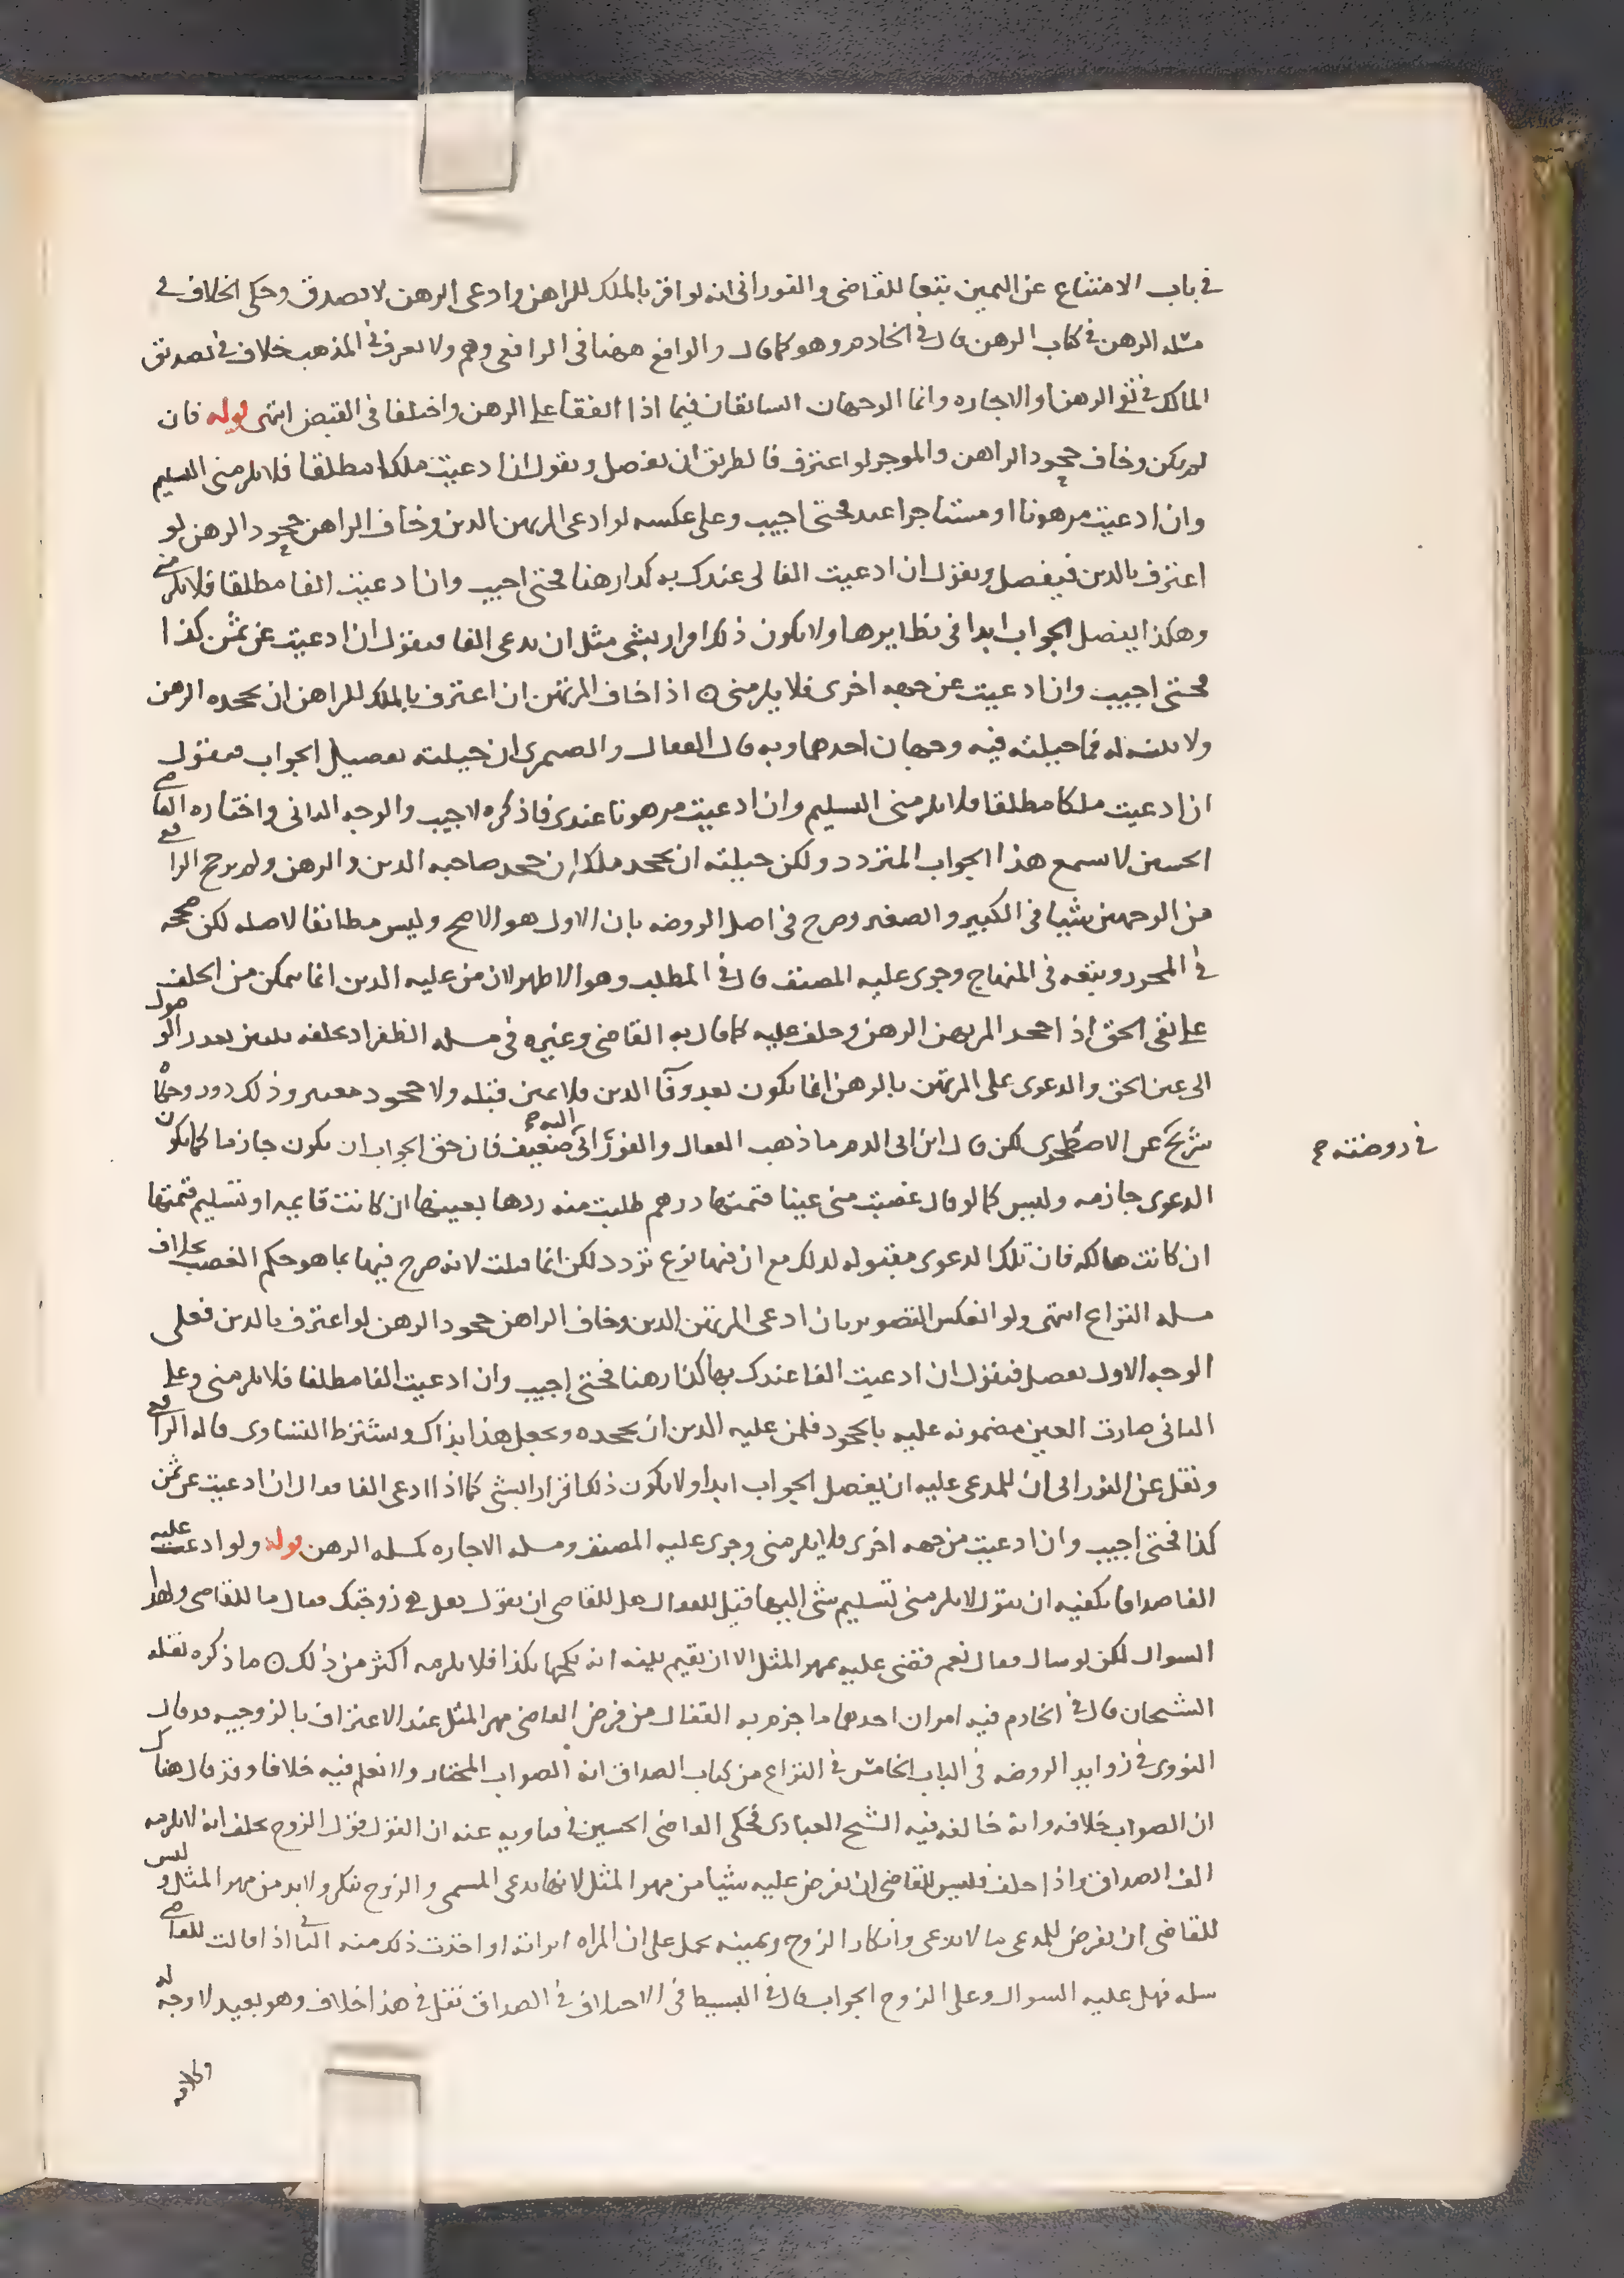 في باب الامتناع عن اليمين تبعا للقاضي والفوراني انه لو اقر بالملك للراهن وادعى الرهن لا يصدق وحكى الخلاف في
مسله الرهن في كتاب الرهن قال في الخادم وهو كما قال والواقع ههنا في الرافعي وهم ولا يعرف في المذهب خلاف في تصديق
المالك في نفي الرهن والاجاره وانما الوجهان السابقان فيما اذا اتفقا على الرهن واختلفا في القبض انتهى قوله فان
لم يكن وخاف جحود الراهن والموجر لو اعترف فالطريق ان يفصل ويقول ان ادعيت ملكا مطلقا فلا يلزمني التسليم
وان ادعيت مرهونا او مستاجرا عندي حتى اجيب وعلى عكسه لو ادعى المرتهن الدين وخاف الراهن جحود الرهن لو
اعترف بالدين فيفصل ويقول ان ادعيت الفا لي عندك به كذا رهنا حتى اجيب وان ادعيت الفا مطلقا فلا يلزمني
وهكذا يفصل الجواب ابدا في نظايرها ولا يكون ذلك اقرار بشي مثل ان يدعي الفا فيقول ان ادعيت عن ثمن كذا
حتى اجيب وان ادعيت عن جهه اخرى فلا يلزمني ه اذا خاف المرتهن ان اعترف بالملك للراهن ان يجحده الرهن
ولا بينه له فما حيلته فيه وجهان احدهما وبه قال القفال والصيمري ان حيلته تفصيل الجواب فيقول
ان ادعيت ملكا مطلقا فلا يلزمني التسليم وان ادعيت مرهونا عندي فاذكره لاجيب والوجه الثاني واختاره القاضي
الحسين لا يسمع هذا الجواب المتردد ولكن حيلته ان يجحد ملكه ان جحد صاحبه الدين والرهن ولم يرجح الرافعي
من الوجهين شيا في الكبير والصغير وصرح في اصل الروضه بان الاول هو الاصح وليس مطابقا لاصله لكن صححه
في المحرر وتبعه في المنهاج وجرى عليه المصنف قال في المطلب وهو الاظهر لان من عليه الدين انما يمكن من الحلف
على نفي الحق اذا جحد المرتهن الرهن وحلف عليه كما قال به القاضي وغيره في مسله الظفر اذ بحلفه يتعين تعذر الوصول
الى عين الحق والدعوى على المرتهن بالرهن انما يكون بعد وفا الدين فلا يمين قبله ولا جحود معتبر وذلك دور وحكاه
شريح عن الاصطخري لكن قال ابن ابي الدم ما ذهب اليه القفال والفوراني ضعيف فان حق الجواب ان يكون جازما كما يكون
في روضته
الدعوى جازمه وليس كما لو قال غصبت مني عينا قيمتها درهم طلبت منه ردها بعينها ان كانت قايمه او تسليم قيمتها
ان كانت هالكه فان تلك الدعوى مقبوله لذلك مع ان فيها نوع تردد لكن انما قبلت لانه صرح فيها بما هو حكم الغصب بخلاف
مسله النزاع انتهى ولو انعكس التصوير بان ادعى المرتهن الدين وخاف الراهن جحود الرهن لو اعترف بالدين فعلى
الوجه الاول يفصل فيقول ان ادعيت الفا عندك بها كذا رهنا حتى اجيب وان ادعيت الفا مطلقا فلا يلزمني وعلى
الثاني صارت العين مضمونه عليه بالجحود فلمن عليه الدين ان يجحده ويجعل هذا بذاك ويشترط التساوي قاله الرافعي
ونقل عن الفوراني ان للمدعى عليه ان يفصل الجواب ابدا ولا يكون ذلك اقرارا بشي كما اذا ادعى الفا فقال ان ادعيت عن ثمن
كذا حتى اجيب وان ادعيت من جهه اخرى فلا يلزمني وجرى عليه المصنف ومسله الاجاره كمسله الرهن قوله ولو ادعت عليه
الفا صداقا يكفيه ان يقول لا يلزمني تسليم شي اليها قيل للقفال هل للقاضي ان يقول هل هي زوجتك فقال ما للقاضي ولهذا
السوال لكن لو سال فقال نعم قضى عليه بمهر المثل الا ان يقيم بينه انه نكحها بكذا فلا يلزمه اكثر من ذلك ه ما ذكره نقله
الشيخان قال في الخادم فيه امران احدهما ما جزم به القفال من فرض القاضي مهر المثل عند الاعتراف بالزوجيه قد قال
النووي في زوايد الروضه في الباب الخامس في النزاع من كتاب الصداق انه الصواب المختار ولا نعلم فيه خلافا وقد قال هناك
ان الصواب خلافه وانه خالفه فيه الشيخ العبادي فحكى القاضي الحسين في فتاويه عنه ان القول قول الزوج بحلف انه لا يلزمه
الف الصداق واذا حلف فليس للقاضي ان يفرض عليه شيا من مهر المثل لانها تدعي المسمى والزوج ينكر ولا بد من مهر المثل وليس
للقاضي ان يفرض للمدعي ما لا يدعي وانكار الزوج ويمينه يحمل على ان المراه ابراته او اخذت ذلك منه الثاني اذا قالت للقاضي
سله فهل عليه السوال وعلى الزوج الجواب قال في البسيط في الاختلاف في الصداق نقل في هذا خلاف وهو بعيد لا وجه له